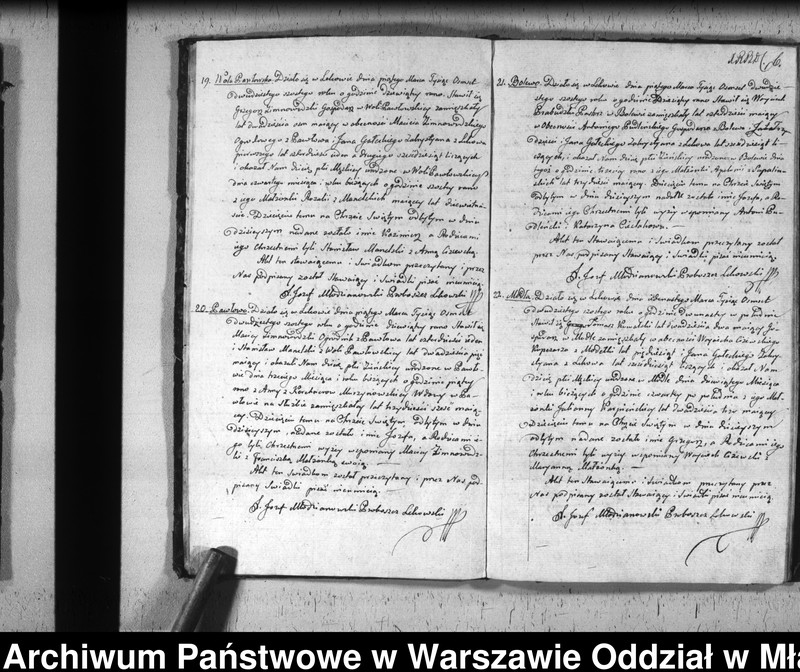 19. Wola Pawłowska. Działo się w Lekowie dnia piątego Marca Tysiąc Osmset
dwudziestego szóstego roku o godzinie dziewiątej rano. Stawił się
Grzegorz Zimnowodzki Gospodarz w Woli Pawłowskiej zamieszkały
lat dwadzieścia osm mający w obecności Macieja Zimnowodzkiego
Ogrodowego z Pawłowa i Jana Gołeckiego
pierwszego lat czterdzieści jeden a drugiego sześćdziesiąt liczących
i okazał Nam dziecię płci Męskiej urodzone w Woli Pawłowskiej
dnia czwartego miesiąca i roku bieżących o godzinie szóstej rano
z jego Małżonki Rozalii z Manelskich mającej lat dziewiętna-
ście. Dziecięciu temu na Chrzcie Świętym odbytym w dniu
dzisiejszym nadane zostało imie Kazimierz a Rodzicami
jego Chrzestnemi byli Stanisław Manelski z Anną
Akt ten stawaiącemu i Świadkom przeczytany i przez
Nas podpisany został Stawaiący i Świadki pisać nieumieią.
X. Jozef Młodzianowski Proboszcz Lekowski
20. Pawłowo. Działo się w Lekowie dnia piątego Marca Tysiąc Osmset
dwudziestego szóstego roku o godzinie dziewiątej rano Stawił się
Maciej Zimnowodzki Ogrodnik z Pawłowa lat czterdzieści jeden
i Stanisław Manelski z Woli Pawłowskiej lat dwadzieścia pięć
mający i okazali Nam dziecię płci Żeńskiej urodzone w Pawło-
wie dnia trzeciego Miesiąca i roku bieżących o godzinie piątej
rano z Anny z Wdowy w Pa-
włowie na Służbie zamieszkałej lat trzydzieści sześć maią-
cej. Dziecięciu temu na Chrzcie Świętym odbytym w dniu
dzisiejszym nadane zostało imie Jozefa, a Rodzicami ie-
go byli Chrzestnemi wyżej wspomniany Maciej Zimnowodz-
ki z Franciszką Małżonką swoią.
Akt ten Świadkom został przeczytany i przez Nas pod-
pisany Świadki pisać nieumieią.
X. Jozef Młodzianowski Proboszcz Lekowski
21. Bolewo. Działo się w Lekowie dnia piątego Marca Tysiąc Osmset dwudzie-
stego szóstego roku o godzinie dziesiątej rano Stawił się Woyciech
w Bolewie zamieszkały lat czterdzieści mający
w Obecności Antoniego Gospodarza z Bolewa
i Jana Gołeckiego z Lekowa lat sześćdziesiąt li-
czących i okazał Nam dziecię płci Żeńskiej urodzone w Bolewie dnia
o godzinie trzeciej rano z jego Małżonki Apolonii z
lat trzydzieści mającej. Dziecięciu temu na Chrzcie Świętym
odbytym w dniu dzisiejszym nadane zostało imie Jozefa, a Ro-
dzicami jego Chrzestnemi byli wyżej wspomniany Antoni
i Katarzyna
Akt ten Stawaiącemu i Świadkom przeczytany został
przez Nas podpisany Stawaiący i Świadki pisać nieumieią.
X. Jozef Młodzianowski Proboszcz Lekowski
22. Mdłta. Działo się w Lekowie dnia Marca Tysiąc Osmset
dwudziestego szóstego roku o godzinie dwunastej w południe
Stawił się Tomasz lat dwadzieścia dwa mający
zamieszkały w obecności Woyciecha
z lat pięćdziesiąt i Jana Gołeckiego
z Lekowa lat sześćdziesiąt liczących i okazał Nam
dziecię płci Męskiej urodzone w dnia dziewiątego Miesiąca
i roku bieżących o godzinie czwartej po południu z jego Mał-
żonki Julianny lat dwadzieścia trzy mającej
Dziecięciu temu na Chrzcie Świętym w dniu dzisiejszym
odbytym nadane zostało imie Grzegorz, a Rodzicami jego
Chrzestnemi byli wyżej wspomniany Woyciech
Maryanną Małżonką.
Akt ten Stawaiącemu i Świadkom przeczytany przez
Nas podpisany został Stawaiący i Świadki pisać nieumieią.
X. Jozef Młodzianowski Proboszcz Lekowski
Archiwum Państwowe w Warszawie Oddział w Mła